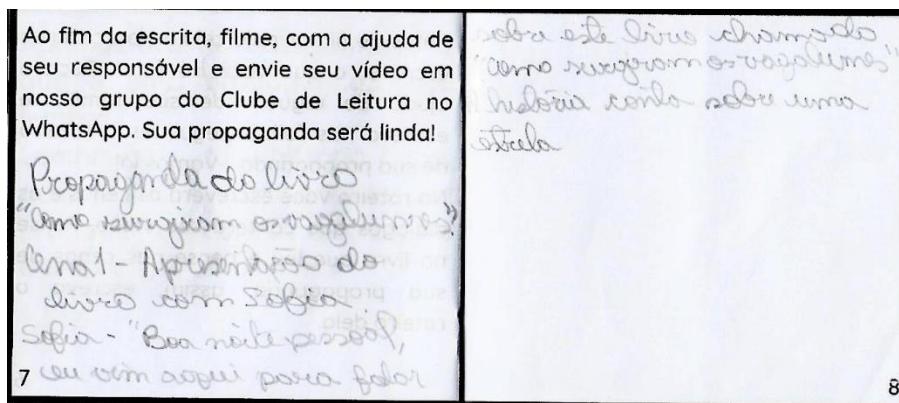 Ao fim da escrita, filme, com a ajuda de
seu responsável e envie seu vídeo em
nosso grupo do Clube de Leitura no
WhatsApp. Sua propaganda será linda!
Propaganda do livro
"Como surgiram os vagalumes"
Cena 1 - Apresentação do
livro com Sofia
Sofia - "Boa noite pessoal,
eu vim aqui para falar
7
sobre este livro chamado
"como surgiram os vagalumes"
história conta sobre uma
estrela
8